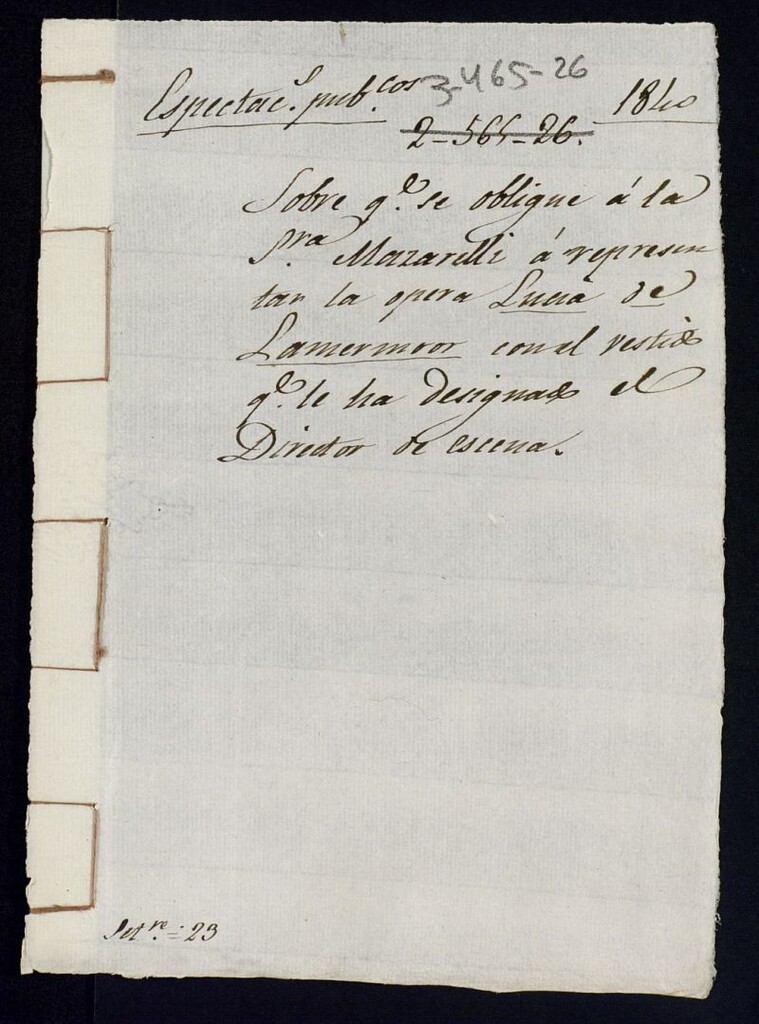 Espectac.s pub.cos 3-465-26 1840
2-565-26.
Sobre q.e se obligue á la
S.ra Mazarelli á represen
tar la opera Lucia de
Lamermoor con el vestido
q.e le ha designado el
Director de escena.
Set.re = 23